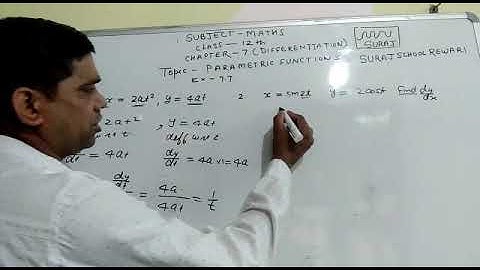 SUBJECT - MATHS
CLASS - 12th
CHAPTER - 7 (DIFFERENTIATION)
SURAJ
Topic - PARAMETRIC FUNCTIONS SURAJ SCHOOL REWARI
Ex - 7.7
x = 2at², y = 4at
2 x = sin2t y = 2cost Find dy/dx
2at² , y = 4at
diff w.r.t
dy/dt = 4a×1 = 4a
dy/dt
= 4a/4at = 1/t